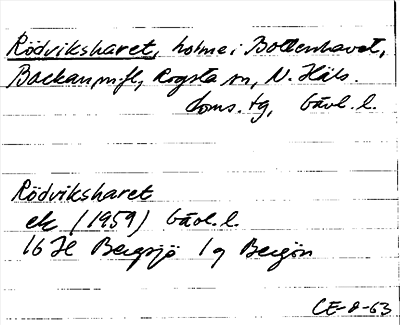 Rödviksharet, holme i Bottenhavet,
Backan, m.fl., Rogsta sn, N. Häls.
doms.tg, Gävl. l.
Rödviksharet
ek (1959) Gävl. l.
16 H Bergsjö 1 g Bergön
CE-8-63